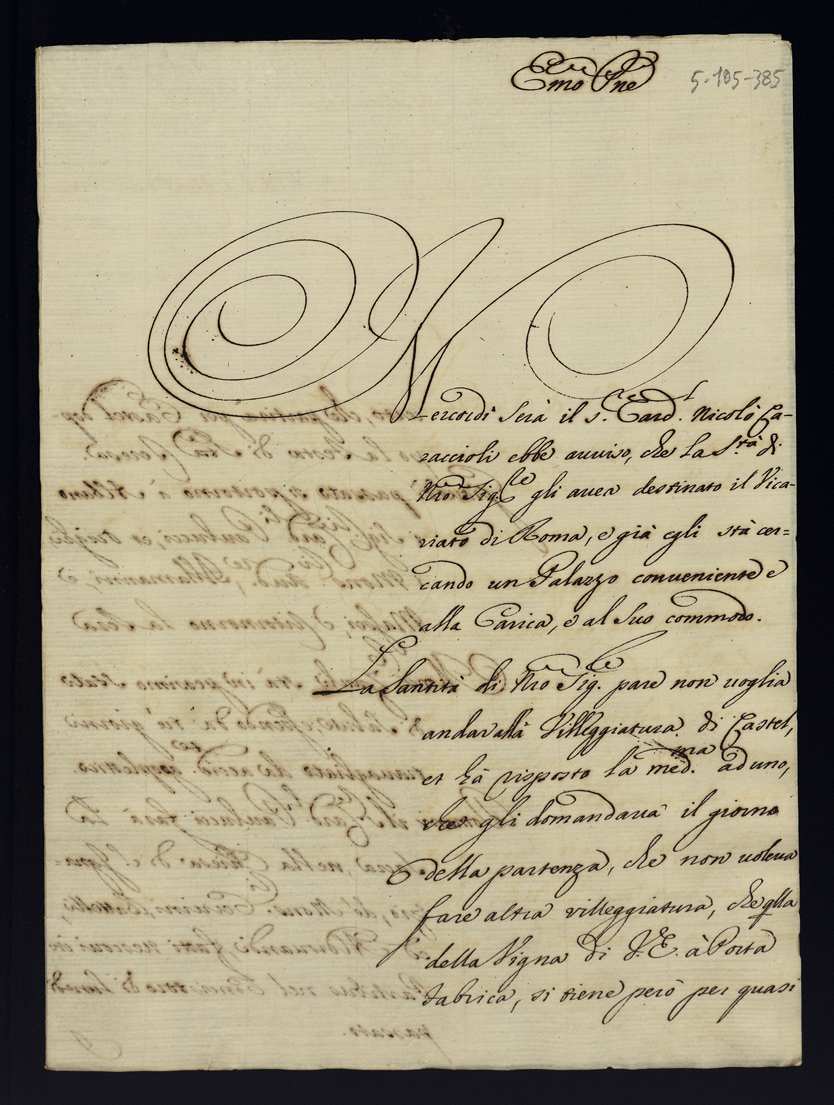 Emo Pne
5-105-385
Mercordì Serà il S.r Card.l Nicolò Ca-
raccioli ebbe auuiso, che La S.tà di
Nro Sig.re gli auea destinato il Vica-
riato di Roma, e già egli stà cer=
cando un Palazzo conueniente e
alla Carica, e al Suo commodo.
La Santità di Nro Sig.re pare non voglia
andar alla Villeggiatura di Castel,
et hà risposto la med.ma ad uno,
che gli domandaua il giorno
della partenza, che non uoleua
fare altra villeggiatura, che qlla
della Vigna di V.E. à Porta
fabrica, si tiene però per quasi